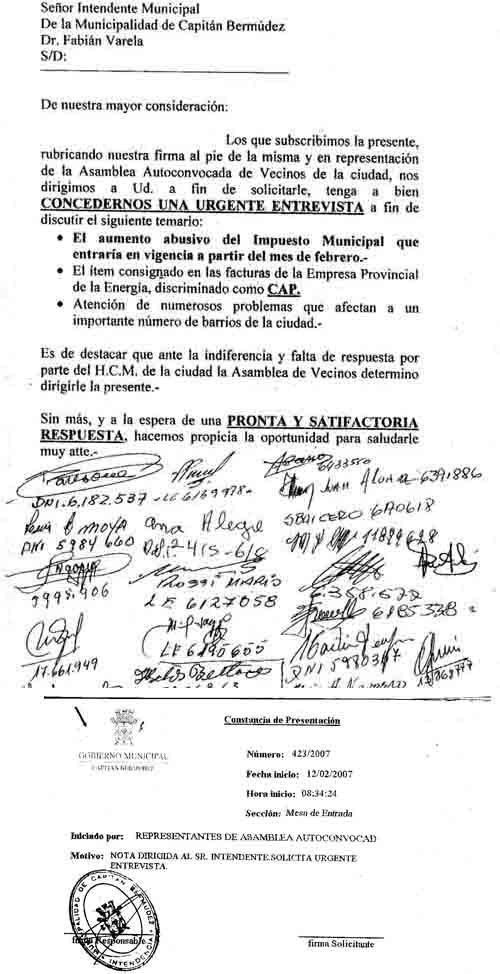 Señor Intendente Municipal
De la Municipalidad de Capitán Bermúdez
Dr. Fabián Varela
S/D:
De nuestra mayor consideración:
Los que subscribimos la presente,
rubricando nuestra firma al pie de la misma y en representación
de la Asamblea Autoconvocada de Vecinos de la ciudad, nos
dirigimos a Ud. a fin de solicitarle, tenga a bien
CONCEDERNOS UNA URGENTE ENTREVISTA a fin de
discutir el siguiente temario:
• El aumento abusivo del Impuesto Municipal que
entraría en vigencia a partir del mes de febrero.-
• El ítem consignado en las facturas de la Empresa Provincial
de la Energía, discriminado como CAP.
• Atención de numerosos problemas que afectan a un
importante número de barrios de la ciudad.-
Es de destacar que ante la indiferencia y falta de respuesta por
parte del H.C.M. de la ciudad la Asamblea de Vecinos determino
dirigirle la presente.-
Sin más, y a la espera de una PRONTA Y SATIFACTORIA
RESPUESTA, hacemos propicia la oportunidad para saludarle
muy atte.-
6433550
DNI.6.182.537 - LE 6169978.-
Juan 6391886
SBAICERO 6170618
MOYA Ana Alegre
DNI 5984660
11889628
ROSSI MARIO
LE 6127058
6.358.572
6185338
LE 6190655
17.661.949
DNI 5980347
GOBIERNO MUNICIPAL
CAPITAN BERMUDEZ
Constancia de Presentación
Número: 423/2007
Fecha inicio: 12/02/2007
Hora inicio: 08:34:24
Sección: Mesa de Entrada
Iniciado por: REPRESENTANTES DE ASAMBLEA AUTOCONVOCAD
Motivo: NOTA DIRIGIDA AL SR. INTENDENTE.SOLICITA URGENTE
ENTREVISTA.
MUNICIPALIDAD DE CAPITAN BERMUDEZ
INTENDENCIA
firma Responsable
firma Solicitante